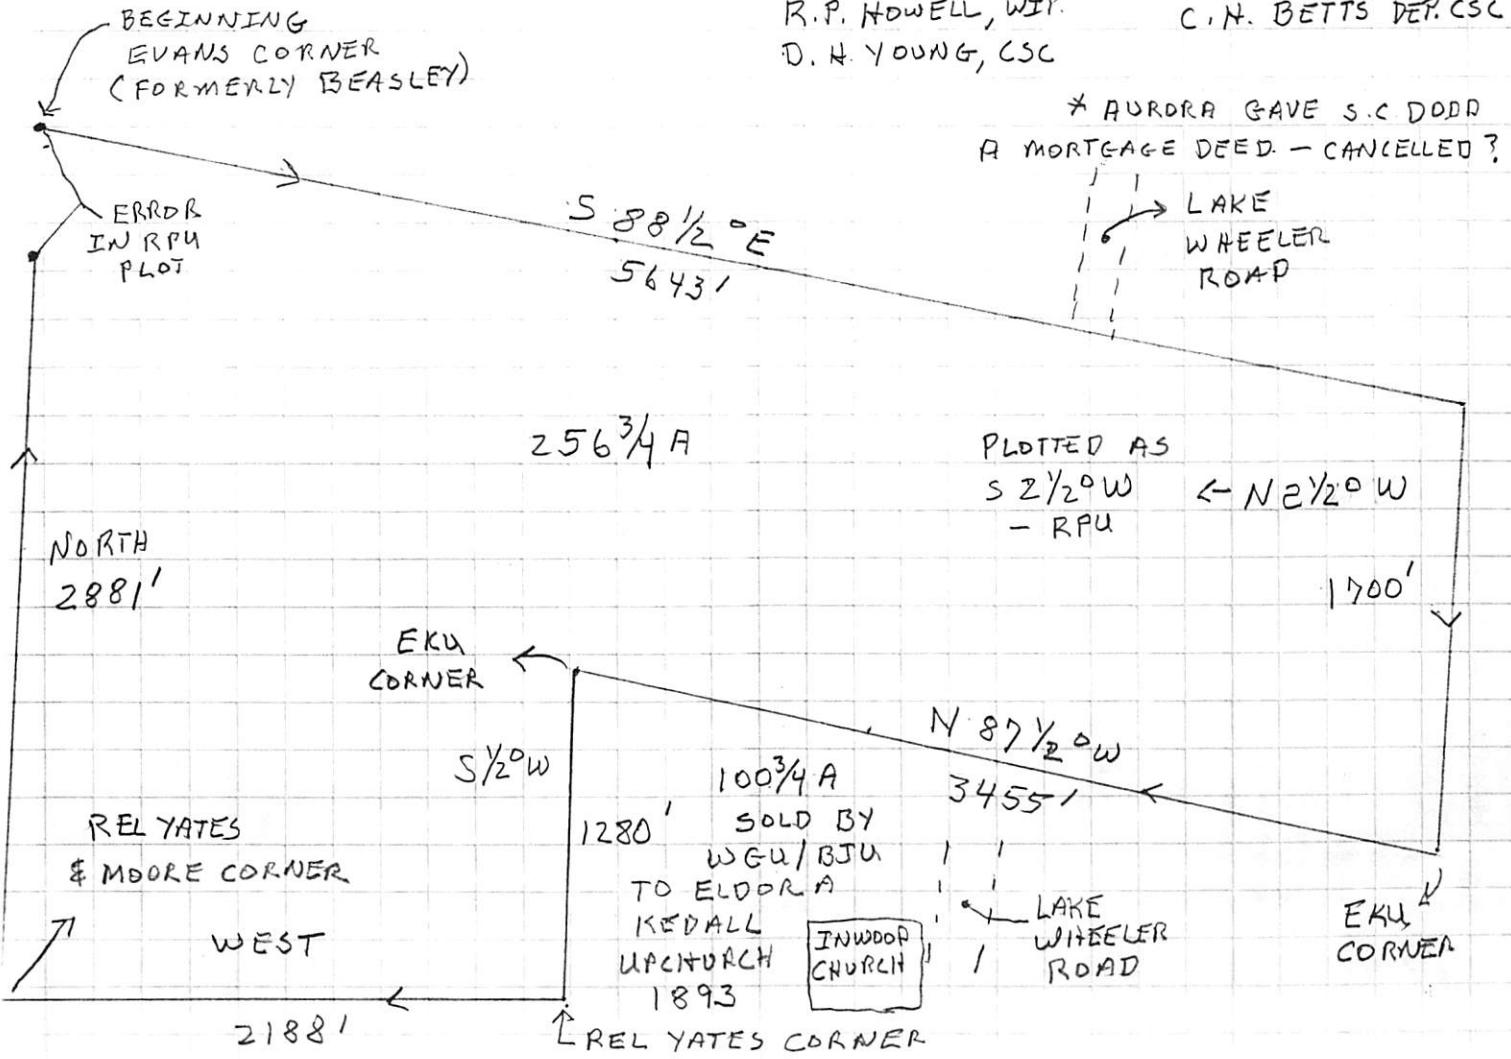 BEGINNING
EVANS CORNER
(FORMERLY BEASLEY)
R.P. HOWELL, WIT.
D. H. YOUNG, CSC
C. H. BETTS DEP. CSC
* AURORA GAVE S.C DODD
A MORTGAGE DEED. — CANCELLED?
LAKE
WHEELER
ROAD
ERROR
IN RPU
PLOT
S 88 1/2 ° E
5643'
256 3/4 A
PLOTTED AS
S 2 1/2° W
— RPU
← N 2 1/2° W
NORTH
2881'
1700'
EKU
CORNER
N 87 1/2 ° W
3455'
S 1/2° W
1280'
100 3/4 A
SOLD BY
WGU/BJU
TO ELDORA
KEDALL
UPCHURCH
1893
REL YATES
& MOORE CORNER
WEST
INWOOD
CHURCH
LAKE
WHEELER
ROAD
EKU
CORNER
2188'
REL YATES CORNER